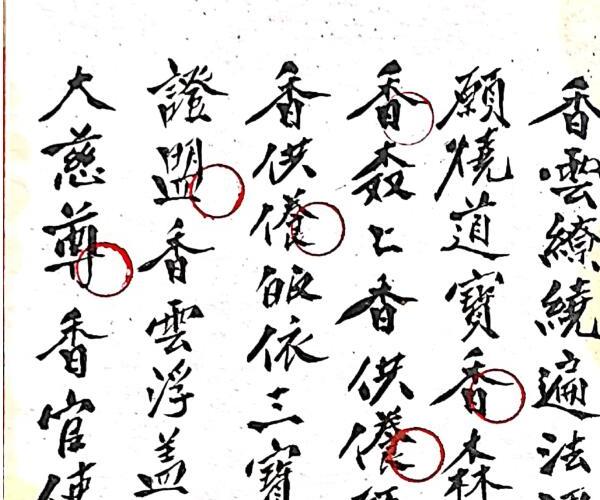 香雲繚繞遍法
願燒道寶香森
香森匕香供養
香供養皈依三寶
證盟香雲浮盖
大慈尊香官